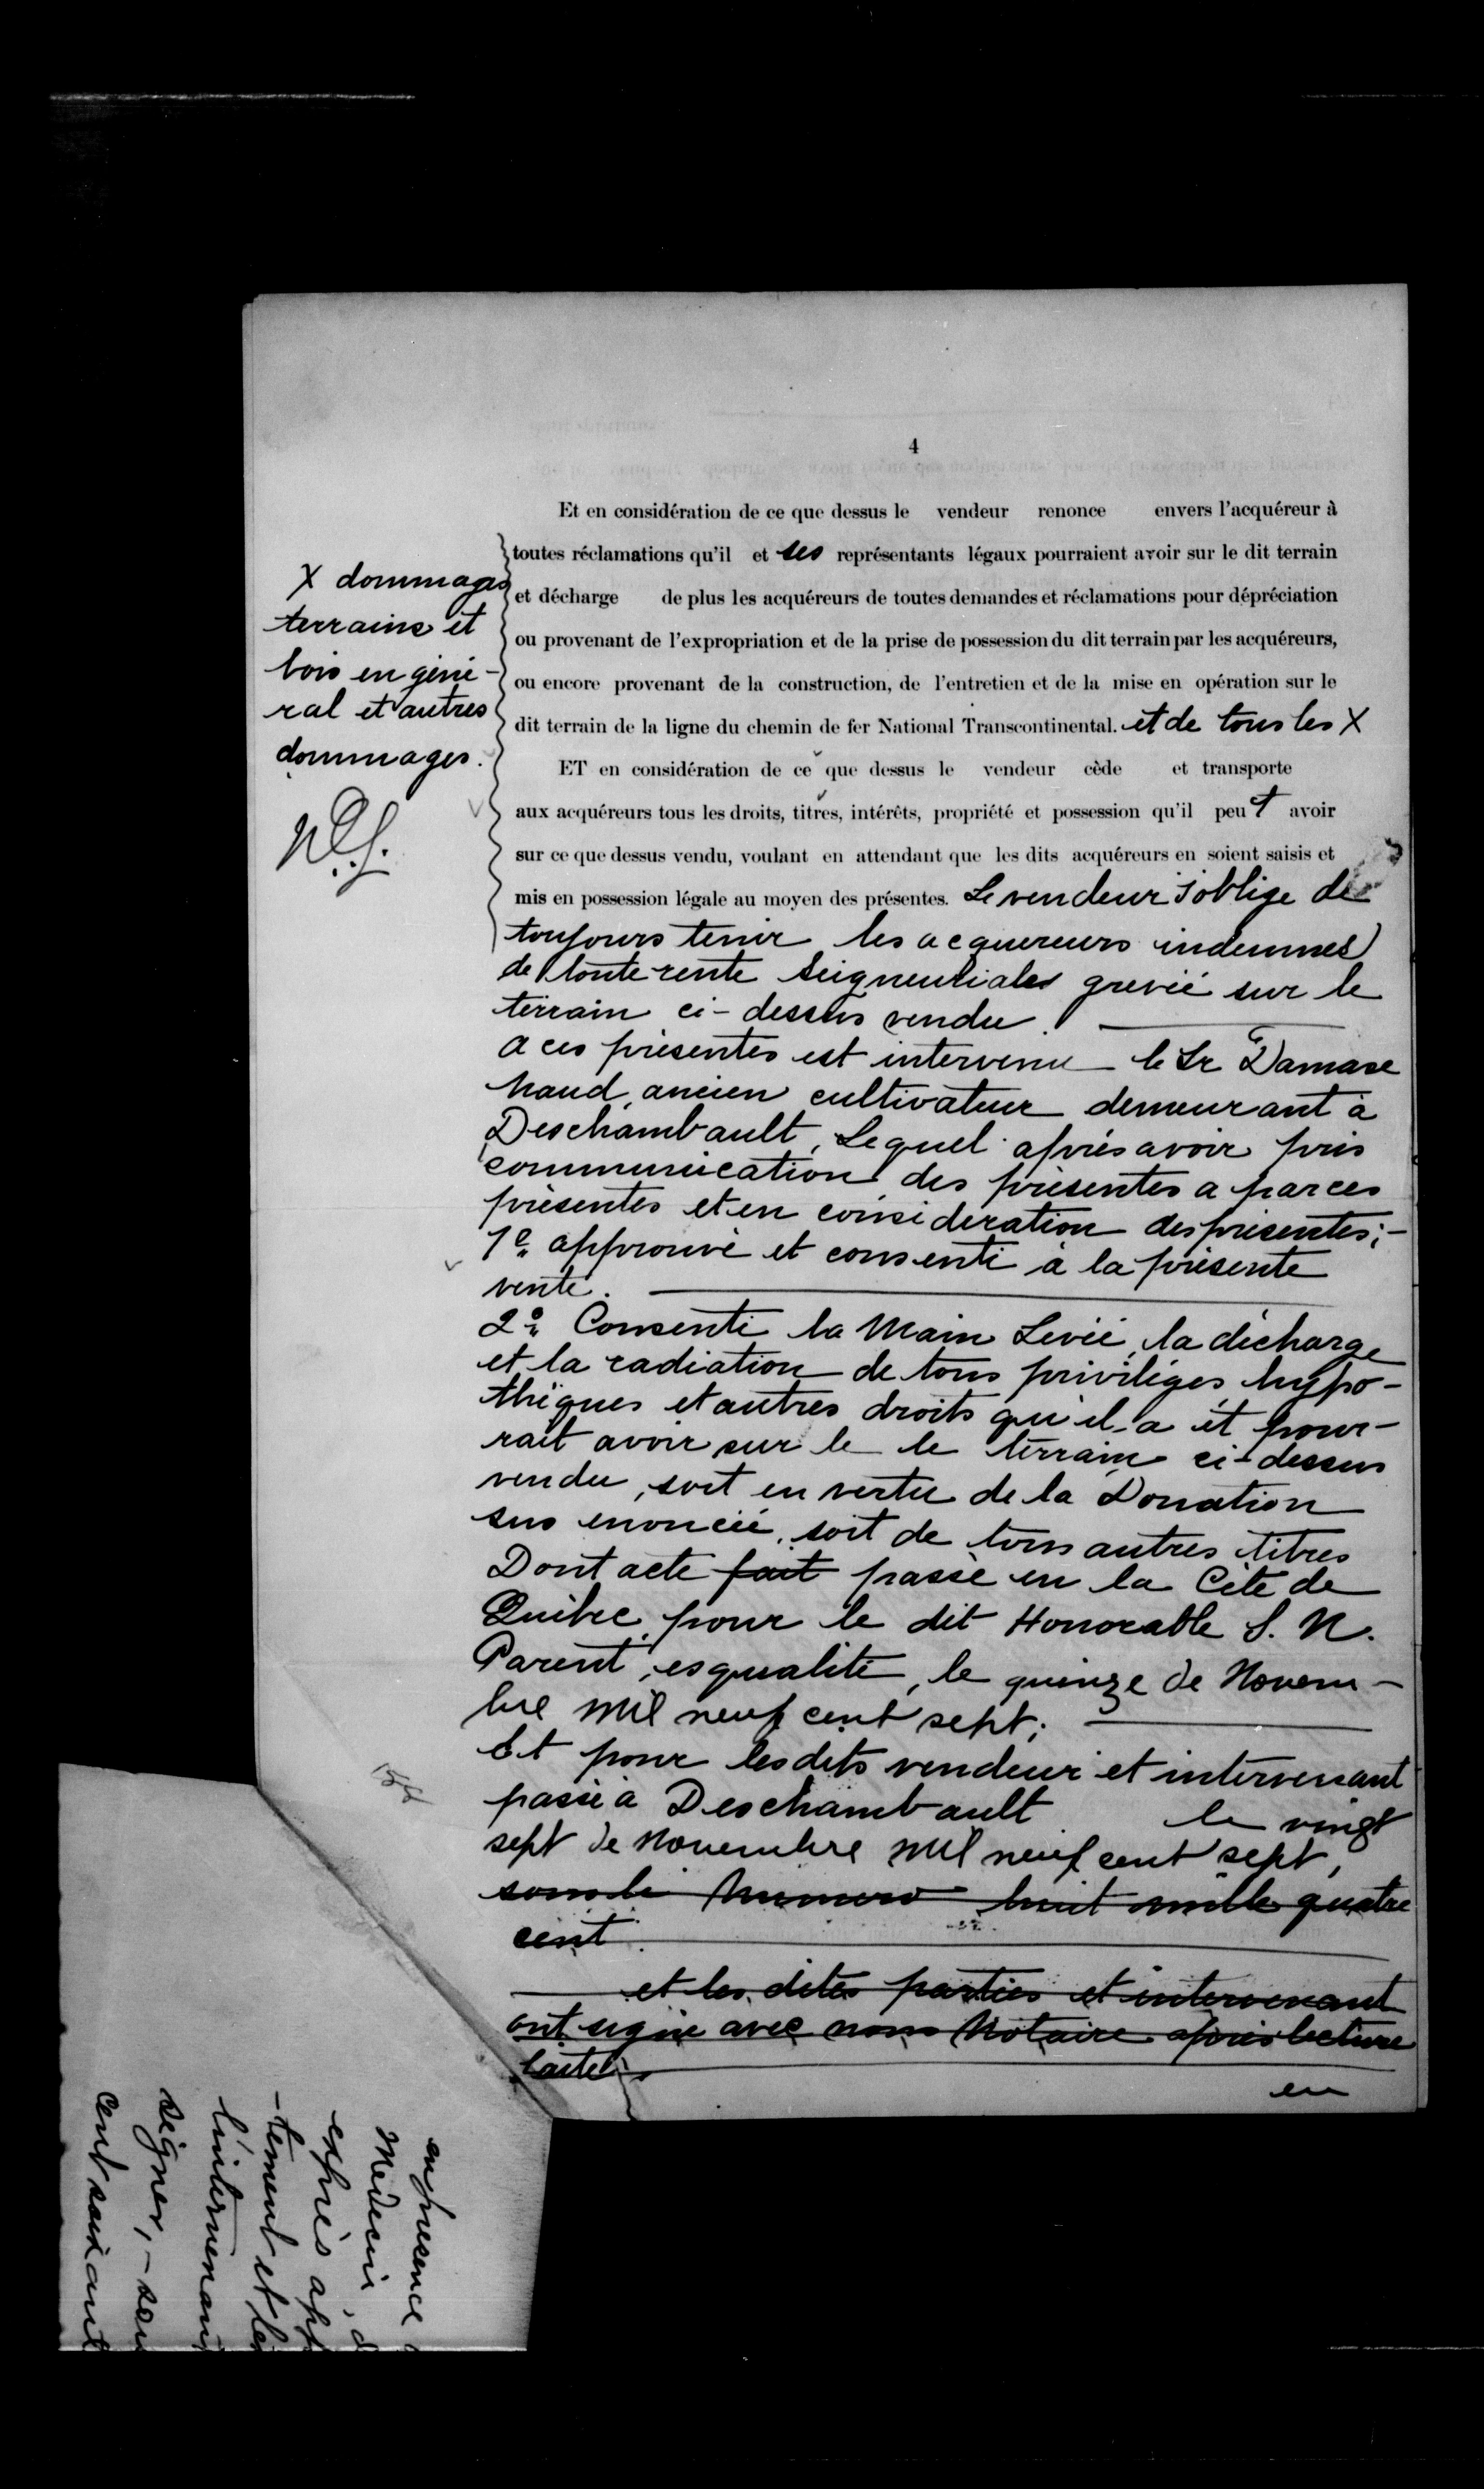 4
Et en considération de ce que dessus le vendeur renonce envers l'acquéreur à
toutes réclamations qu'il et ses représentants légaux pourraient avoir sur le dit terrain
et décharge de plus les acquéreurs de toutes demandes et réclamations pour dépréciation
ou provenant de l'expropriation et de la prise de possession du dit terrain par les acquéreurs,
ou encore provenant de la construction, de l'entretien et de la mise en opération sur le
dit terrain de la ligne du chemin de fer National Transcontinental. et de tous les X
X dommages
terrains et
bois en géné-
ral et autres
dommages.
ET en considération de ce que dessus le vendeur cède et transporte
aux acquéreurs tous les droits, titres, intérêts, propriété et possession qu'il peut avoir
sur ce que dessus vendu, voulant en attendant que les dits acquéreurs en soient saisis et
mis en possession légale au moyen des présentes. Le vendeur s'oblige de
toujours tenir les acquereurs indemnes
de toute rente seigneuriales grevée sur le
terrain ci-dessus vendu.
A ces présentes est intervenu le Sr Damase
Naud, ancien cultivateur demeurant à
Deschambault, Lequel après avoir pris
communication des présentes a par ces
présentes et en considération des présentes;-
1o approuvé et consenti à la présente
vente.
2o Consenti la Main Levée, la décharge
et la radiation de tous privilèges hypo-
thèques et autres droits qu'il a et pour-
rait avoir sur le le terrain ci-dessus
vendu, soit en vertu de la Donation
sus enoncée, soit de tous autres titres
Dont acte fait passé en la Cité de
Québec, pour le dit Honorable S. N.
Parent, esqualité, le quinze de Novem-
bre mil neuf cent sept;
Et pour les dits vendeur et intervenant
passé à Deschambault le vingt
sept de Novembre mil neuf cent sept,
sous le Numero huit mille quatre
cent
et les dites parties et intervenant
ont signé avec nous Notaire après lecture
faite
en
en presence
Médecin, d
exprès app
-tement et le
l'intervenant
signer, - sou
cent soixante